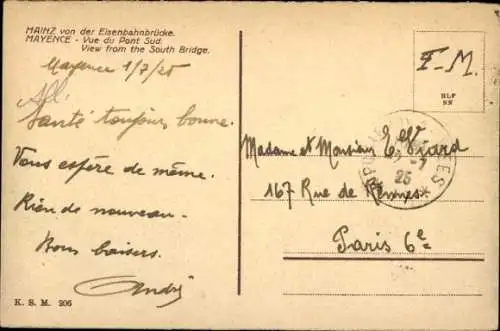 MAINZ von der Eisenbahnbrücke.
MAYENCE - Vue du Pont Sud.
View from the South Bridge.
Mayence 1/7/25
Santé toujours bonne.
Vous espère de même.
Rien de nouveau.
Bons baisers.
André
K. S. M. 206
F-M.
HLF
NN
Madame et Monsieur E.
167 Rue de Rennes
Paris 6e
2-7
25